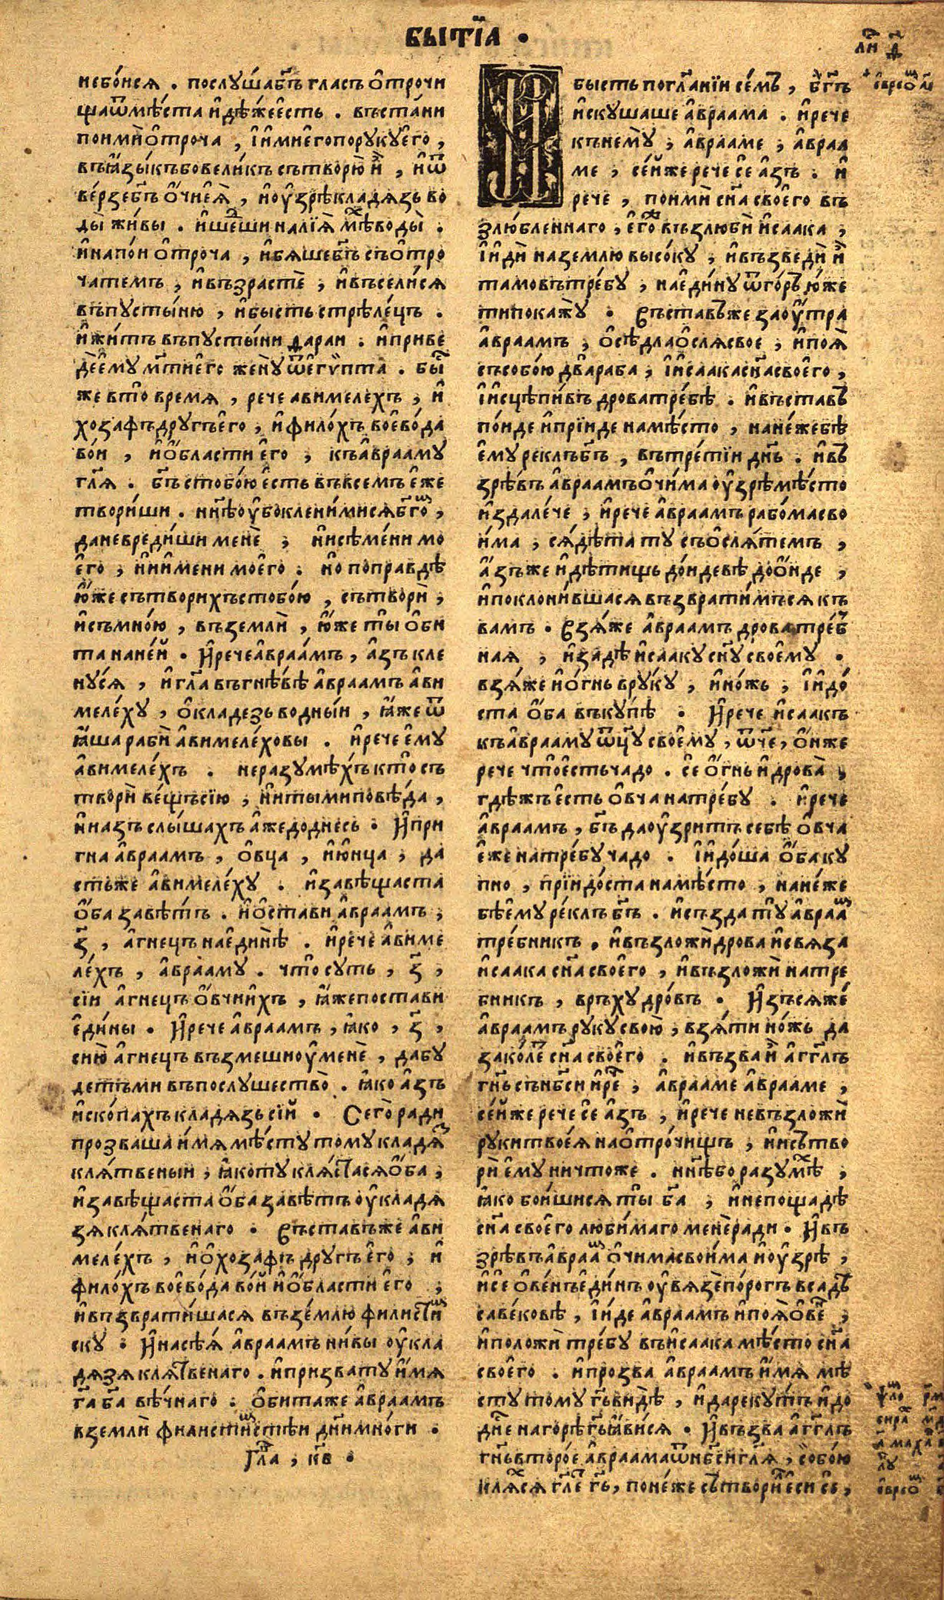 бытїа .
небо́исѧ . послꙋ́ша бг҃ъ гла́съ ѻ҆́трочи
ща ѿ мѣ́ста и҆дѣ́же е҆́сть . въста́ни
поими̑ ѻ҆́троча , и҆ и҆мие҆го̀ по рꙋ́кꙋ е҆го̀ ,
въ ꙗ҆зы́къ бо вели́къ сътворю̀ и҆̀ , и҆ ѿ
ве́рзе бг҃ъ ѻ҆́чи е҆ѧ̀ , и҆ ᲂу҆зрѣ̀ кладѧ́зь во
ды̀ жи́вы . и҆ ше́ши налїѧ̀ мѣ́х воды̀ .
и҆ напои̑ ѻ҆́троча , и҆ бѧ́ше бг҃ъ съ ѻ҆́тро
ча́темъ , и҆ възрастѐ , и҆ въсели́сѧ
въ пꙋсты́ню , и҆ бы́сть стрѣле́цъ .
и҆ жи́тъ въ пꙋсты́ни даран . и҆ приве
дѐ е҆мꙋ̀ мт҃и е҆го̀ женꙋ̀ ѿ е҆гѵ́пта . бы́
же в то̀ времѧ , рече а҆вимеле́хъ , и҆
хоза́фъ дрꙋ́гъ е҆го̀ , и҆ фило́хъ воево́да
во́и , и҆ ѻ҆́бласти е҆го̀ ; къ а҆враа́мꙋ
гл҃ѧ . бг҃ъ с тобо́ю е҆́сть въ все́мъ е҆́же
твори́ши . нн҃ѣ ᲂу҆̀бо клени́мисѧ бг҃ѡ ,
да не вреди́ши менѐ , ни сѣ́мени мо
е҆го̀ , ни и҆́мени моего̀ . но по пра́вдѣ
ю҆́же сътвори́хъ с тобо́ю , сътворѝ ,
и҆ съ мно́ю , въ землѝ , ю҆́же ты̀ ѻ҆би
та на не́й . И҆ рече а҆враа́мъ , а҆́зъ кле
нꙋ́сѧ , и҆ гл҃а въ гнѣ́вѣ а҆враа́мъ а҆ви
меле́хꙋ , ѻ҆ кла́дезь во́дныи , ꙗ҆́же ѿ
ꙗ҆́ша рабѝ а҆вимеле́ховы . и҆ рече е҆мꙋ̀
а҆вимеле́хъ . не разꙋмѣ́хъ кто̀ съ
творѝ ве́щь сїю̀ , ни ты̀ ми повѣ́да ,
ни а҆́зъ слы́шахъ а҆́же до дне́сь . И҆ при
гна а҆враа́мъ , ѻ҆́вца , и҆ ю҆́нца , да
стъ же а҆вимеле́хꙋ . и҆ завѣща́ста
ѻ҆́ба завѣ́тъ . и҆ ѻ҆ста́ви а҆враа́мъ ,
з҃ , а҆́гнецъ наеди́нѣ . и҆ рече а҆виме
ле́хъ , а҆враа́мꙋ . что̀ сꙋ́ть , з҃ ,
сїи а҆́гнецъ ѻ҆́вчи́хъ , ꙗ҆́же поста́ви
е҆ди́ны . И҆ рече а҆враа́мъ , ꙗ҆́ко , з҃ ,
сию̀ а҆́гнецъ възмеши ᲂу҆ менѐ , да бꙋ́
де́тъ ми въ послꙋ́шество . ꙗ҆́ко а҆́зъ
и҆скопа́хъ кладѧ́зь сїй . Сего̀ ради
прозваша и҆́мѧ мѣ́стꙋ томꙋ̀ кладѧ́з
клѧ́твеныи , ꙗ҆́ко тꙋ̀ клѧ́стасѧ ѻ҆́ба ,
и҆ завѣща́ста ѻ҆́ба завѣ́тъ ᲂу҆ кладѧ́
зѧ клѧ́твенаго . Въста́въ же а҆ви
меле́хъ , и҆ ѻ҆хоза́фїъ дрꙋ́гъ е҆го̀ , и҆
фило́хъ воево́да во́й и҆ ѻ҆́бласти е҆го̀ ,
и҆ възврати́шасѧ въ зе́млю филисти́
скꙋ . И҆ насѣ́ѧ а҆враа́мъ ни́вы ᲂу҆ кла
дѧ́зѧ клѧ́твенаго . и҆ призва тꙋ̀ и҆́мѧ
га҃ ба҃ вѣ́чнаго . ѻ҆бита́ же а҆враа́мъ
в землѝ филисти́нстѣи дн҃и мно́ги .
Гл҃а , кв .
бы́сть по гл҃анїи се́мъ , бг҃ъ
и҆скꙋша́ше а҆враа́ма . и҆ рече
къ немꙋ̀ , а҆враа́ме , а҆враа́
ме , се́й же рече сѐ а҆́зъ . и҆
рече , поимѝ сн҃а своего̀ въ
злю́бленнаго , е҆го́ж възлюбѝ и҆саа́ка ,
и҆ и҆дѝ на зе́млю высо́кꙋ , и҆ възведѝ и҆̀
та́мо въ тре́бꙋ , на е҆ди́нꙋ ѿ го́ръ ю҆́же
ти покажꙋ̀ . Въста́въ же заꙋ́тра
а҆враа́мъ , ѻ҆сѣдла̀ ѻ҆слѧ̀ свое , и҆ поѧ̀
съ собо́ю два̀ раба̀ , и҆ и҆саа́ка сн҃а своего̀ ,
и҆ и҆сцѣпи́въ дро́ва тре́бѣ . и҆ въста́въ
по́иде и҆ прїи́де на мѣ́сто , на не́же бѣ̀
е҆мꙋ̀ рекл бг҃ъ , въ тре́тїи дн҃ь . и҆ въ
зрѣ́въ а҆враа́мъ ѻ҆чи́ма ᲂу҆зрѣ̀ мѣ́сто
и҆здале́че , и҆ рече а҆враа́мъ рабо́ма сво
и҆́ма , сѧ́дѣта тꙋ̀ съ ѻ҆слѧ́темъ ,
а҆́зъ же и҆ дѣ́тищь до́идевѣ до ѻ҆́нде ,
и҆ поклони́вшасѧ възврати́мъсѧ къ
ва́мъ . Взѧ́ же а҆враа́мъ дро́ва тре́б
наѧ , и҆ задѣ̀ и҆саа́кꙋ сн҃ꙋ своемꙋ̀ .
взѧ́ же и҆ ѻ҆́гнь в рꙋкꙋ̀ , и҆ но́жь , и҆ и҆до́
ста ѻ҆́ба въкꙋ́пѣ . И҆ рече и҆саа́къ
къ а҆враа́мꙋ ѿц҃ꙋ своемꙋ̀ , ѿче , ѻ҆́н же
рече что̀ е҆́сть ча́до . сѐ ѻ҆́гнь и҆ дрова̀ ,
гдѣ́ жъ е҆́сть ѻ҆́вча на тре́бꙋ . и҆ рече
а҆враа́мъ , бг҃ъ да ᲂу҆́зритъ себѣ̀ ѻ҆́вча
е҆́же на тре́бꙋ ча́до . и҆ и҆до́ша ѻ҆́ба кꙋ
пно , прїидо́ста на мѣ́сто , на не́же
бѣ̀ е҆мꙋ̀ ре́клъ бг҃ъ . и҆ създа тꙋ̀ а҆враа́м
тре́бникъ . и҆ възложѝ дро́ва и҆ свѧ́за
и҆саа́ка сн҃а своего̀ , и҆ възложѝ на тре́
бникъ , врьхꙋ̀ дро́въ . И҆зъсѧ́же
а҆враа́мъ рꙋ́кꙋ свою̀ , взѧ́ти но́жь да
зако́ле сн҃а своего̀ . и҆ възва и҆̀ а҆гг҃лъ
гн҃ь съ нб҃си и҆ рече , а҆враа́ме а҆враа́ме ,
се́й же рече сѐ а҆́зъ , и҆ рече не възложѝ
рꙋки твоеѧ̀ на ѻ҆́трочищъ , ни сътво
рѝ е҆мꙋ̀ ничто́же . нн҃ѣ бо разꙋмѣ́х ,
ꙗ҆́ко бои́шисѧ ты̀ ба҃ , и҆ не пощадѣ̀
сн҃а своего̀ люби́маго менѐ ради . И҆ въ
зрѣ́въ а҆враа́м ѻ҆чи́ма свои́ма и҆ ᲂу҆зрѣ̀ ,
и҆ сѐ ѻ҆ве́нъ е҆ди́нъ ᲂу҆вѧ́зе по́рогъ в садъ
саве́ковѣ , и҆ и҆́де а҆враа́мъ и҆ поѧ̀ ѻ҆ве́н ,
и҆ положѝ тре́бꙋ въ и҆саа́ка мѣ́сто сн҃а
своего̀ . и҆ прозва а҆враа́мъ и҆́мѧ мѣ́
стꙋ томꙋ̀ гь҃ видѣ̀ , и҆ да рекꙋ́тъ и҆ до
дн҃е на горѣ̀ гь҃ ꙗ҆ви́сѧ . И҆ възва а҆гг҃лъ
гн҃ь второ́е а҆враа́ма ѿ нб҃си гл҃ѧ , собо́ю
клѧ́хсѧ гл҃ет гь҃ , поне́же сътвори́л е҆си сѐ ,